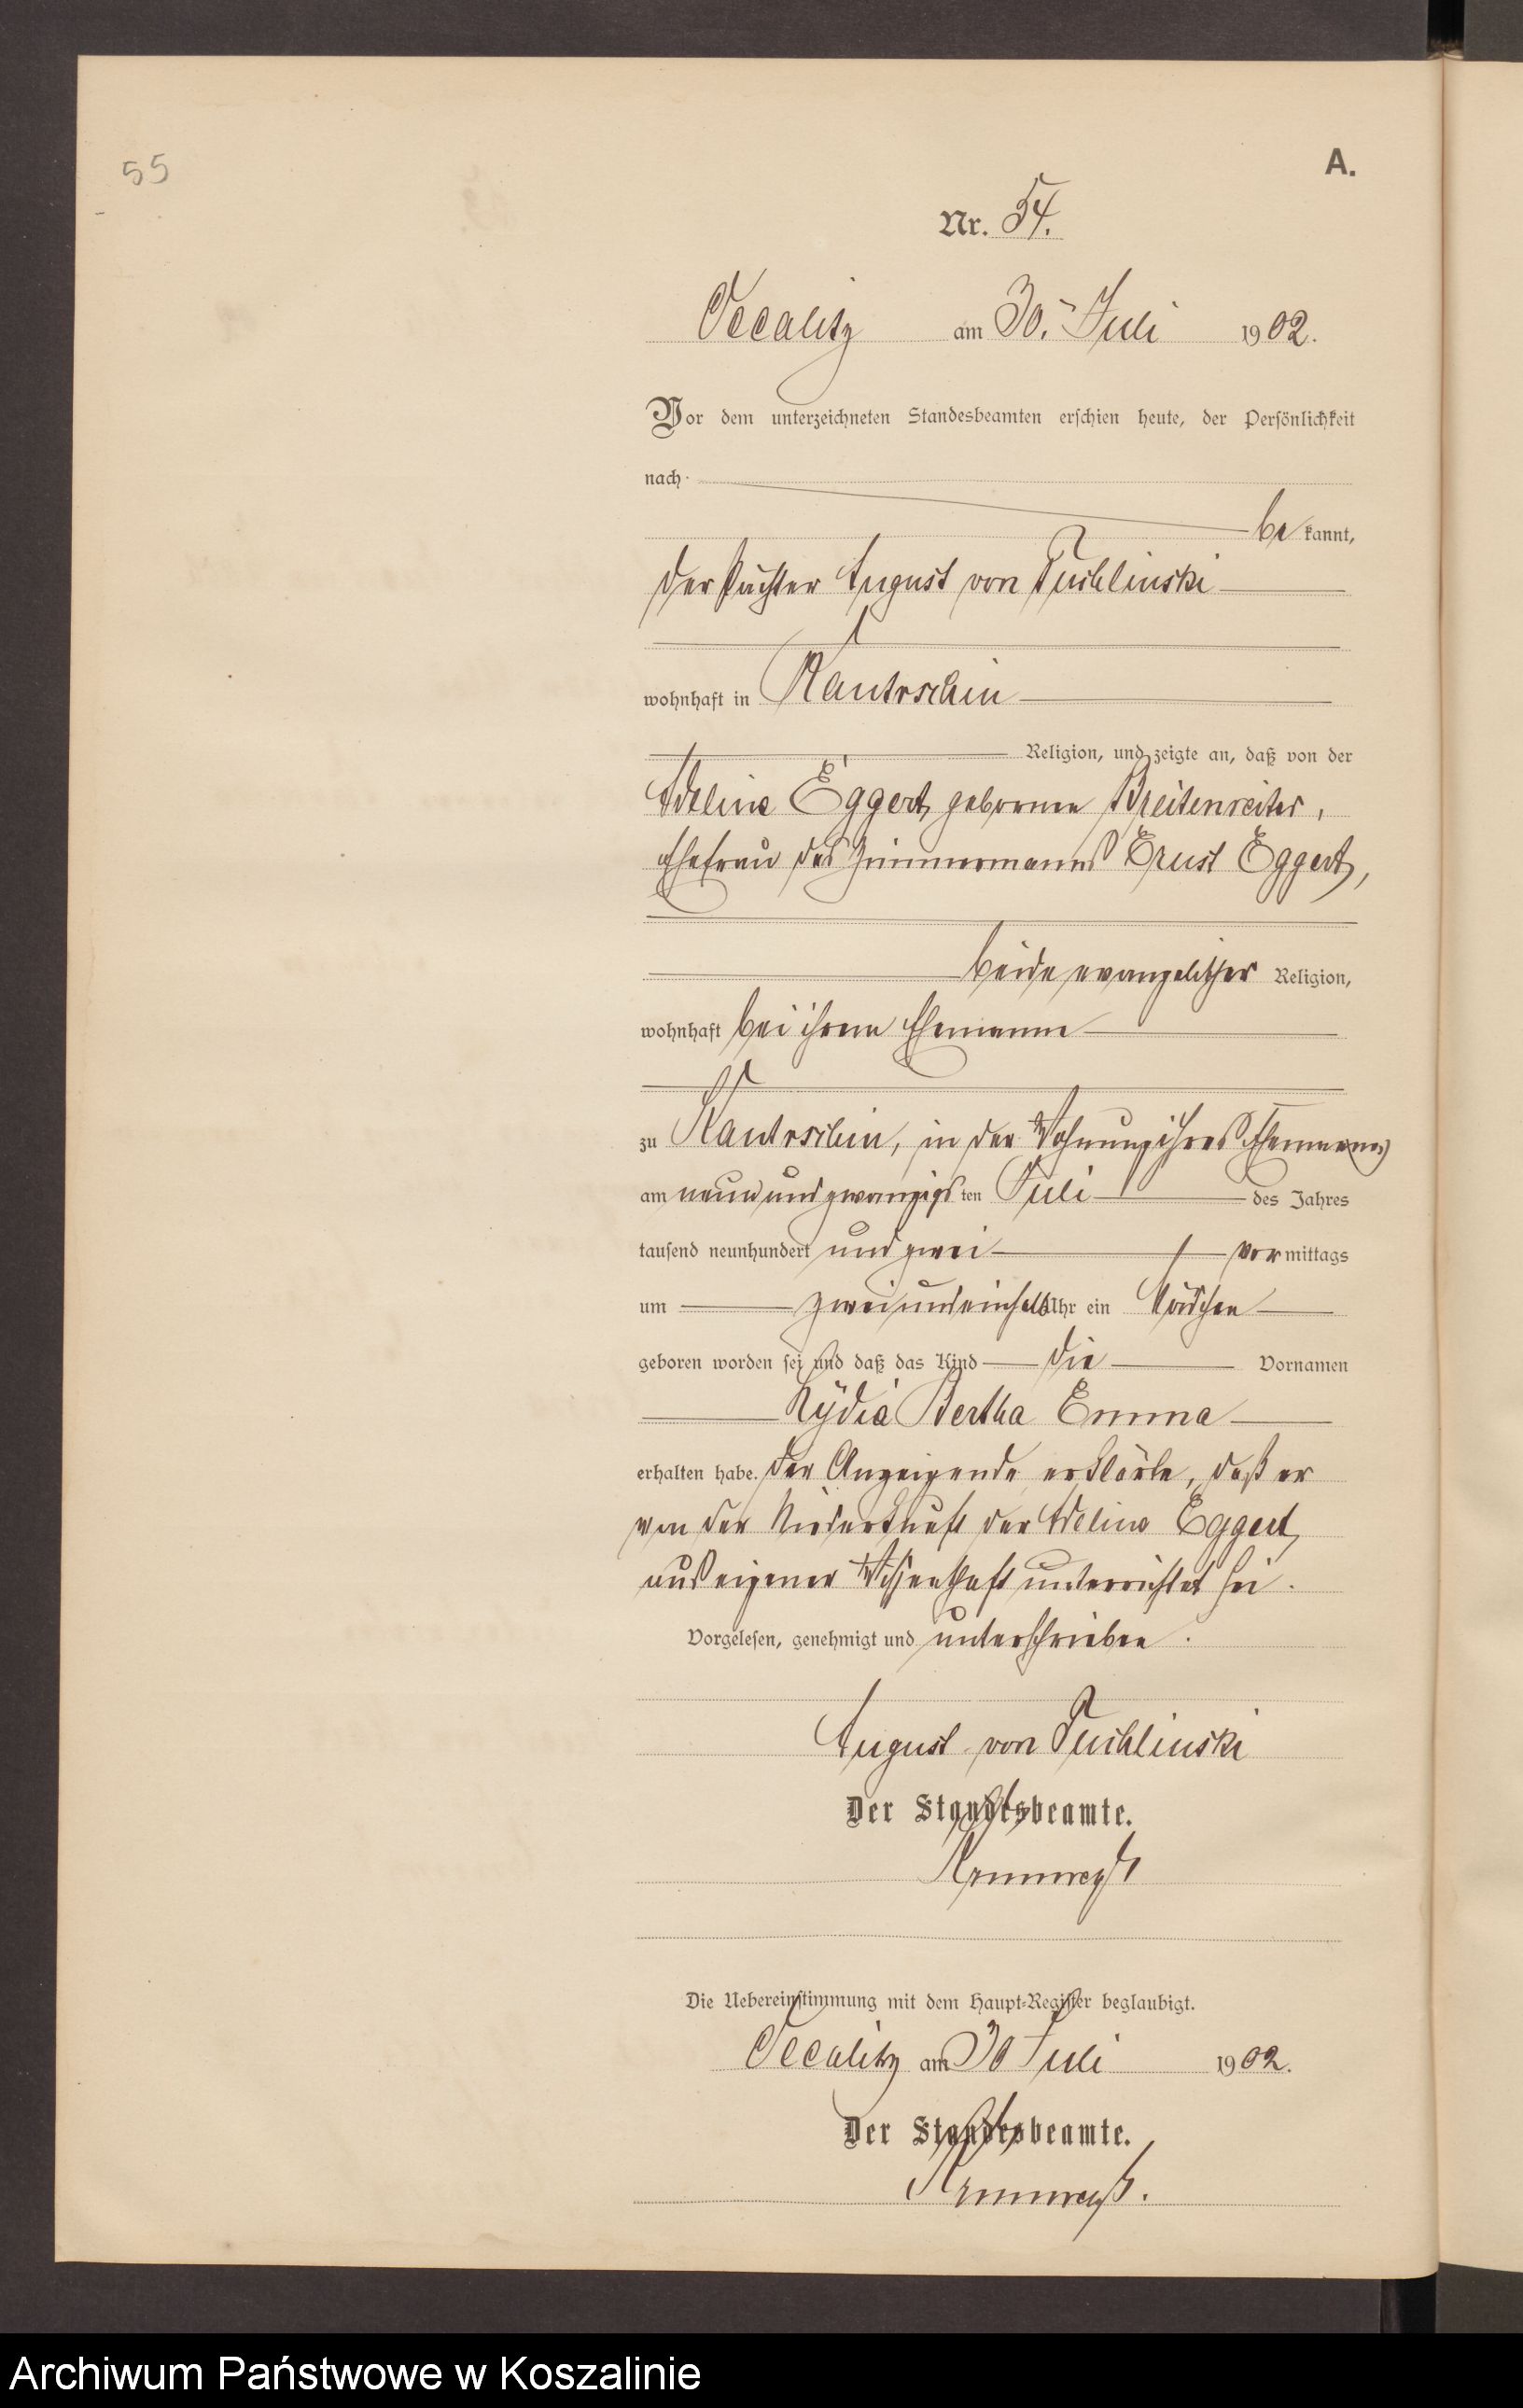 55
A.
Nr. 54.
Vecalitz am 30. Juli 1902.
Vor dem unterzeichneten Standesbeamten erschien heute, der Persönlichkeit
nach
be kannt,
der Pächter August von Tuchlinski
wohnhaft in Kantrschin
Religion, und zeigte an, daß von der
Adeline Eggert, geborene Breitenreiter,
Ehefrau des Zimmermanns Ernst Eggert,
beide evangelischer Religion,
wohnhaft bei ihrem Ehemanne
zu Kantrschin, in der Wohnung ihres Ehemannes
am neunundzwanzigs ten Juli des Jahres
tausend neunhundert und zwei vor mittags
um zweiundeinhalb Uhr ein Mädchen
geboren worden sei und daß das Kind die Vornamen
Lydia Bertha Emma
erhalten habe. Der Anzeigende erklärte, daß er
von der Niederkunft der Adeline Eggert
aus eigener Wissenschaft unterrichtet sei.
Vorgelesen, genehmigt und unterschrieben.
August von Tuchlinski
Der Standesbeamte.
Die Uebereinstimmung mit dem Haupt-Register beglaubigt.
Vecalitz am 30 Juli 1902.
Der Standesbeamte.
Archiwum Państwowe w Koszalinie